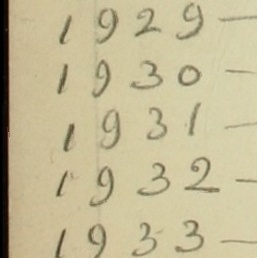 1929 —
1930 —
1931 —
1932 —
1933 —